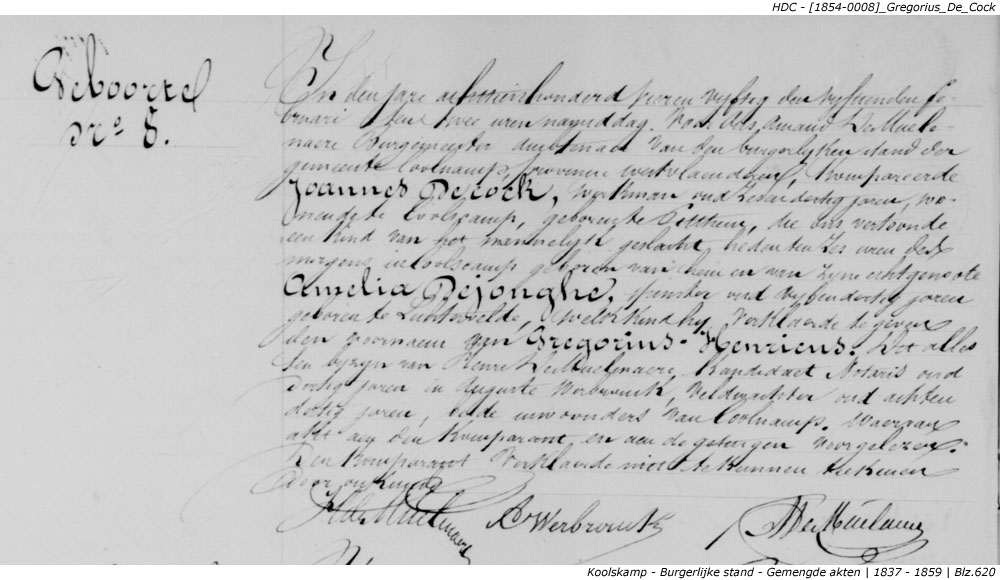 HDC - [1854-0008]_Gregorius_De_Cock
Geboorte
Nro 8.
In den jare achttienhonderd vieren vyftig den vyftienden fe-
bruari ten twee uren namiddag. Voor ons, Amand De Meule-
naere Burgemeester ambtenaar van den burgerlyken stand der
gemeente Coolscamp, provincie westvlaenderen, kompareerde
Joannes Decock, werkman oud jaren, wo-
nende te Coolscamp, geboren te Pitthem, die ons vertoonde
een kind van het mannelyk geslacht, heden ten zes uren des
morgens te Coolscamp geboren van hem en van zyne echtgenoote
Amelia Dejonghe, spinster oud vyfendertig jaren
geboren te Lichtervelde, welk kind hy verklaerde te geven
den voornaem van Gregorius-Henricus. Dit alles
ten bywyn van Henri De Meulenaere, Kandidaet Notaris oud
dertig jaren en Auguste Werbrouck, Veldwachter oud achten
dertig jaren, beide inwoonders van Coolscamp. Waervan
akt aan den Komparant, en aen de getuigen voorgelezen.
Den Komparant verklaerde niet te kunnen teekenen
door onkunde
H De Meulenaere A Werbrouck A De Meulenaere
Koolskamp - Burgerlijke stand - Gemengde akten | 1837 - 1859 | Blz.620